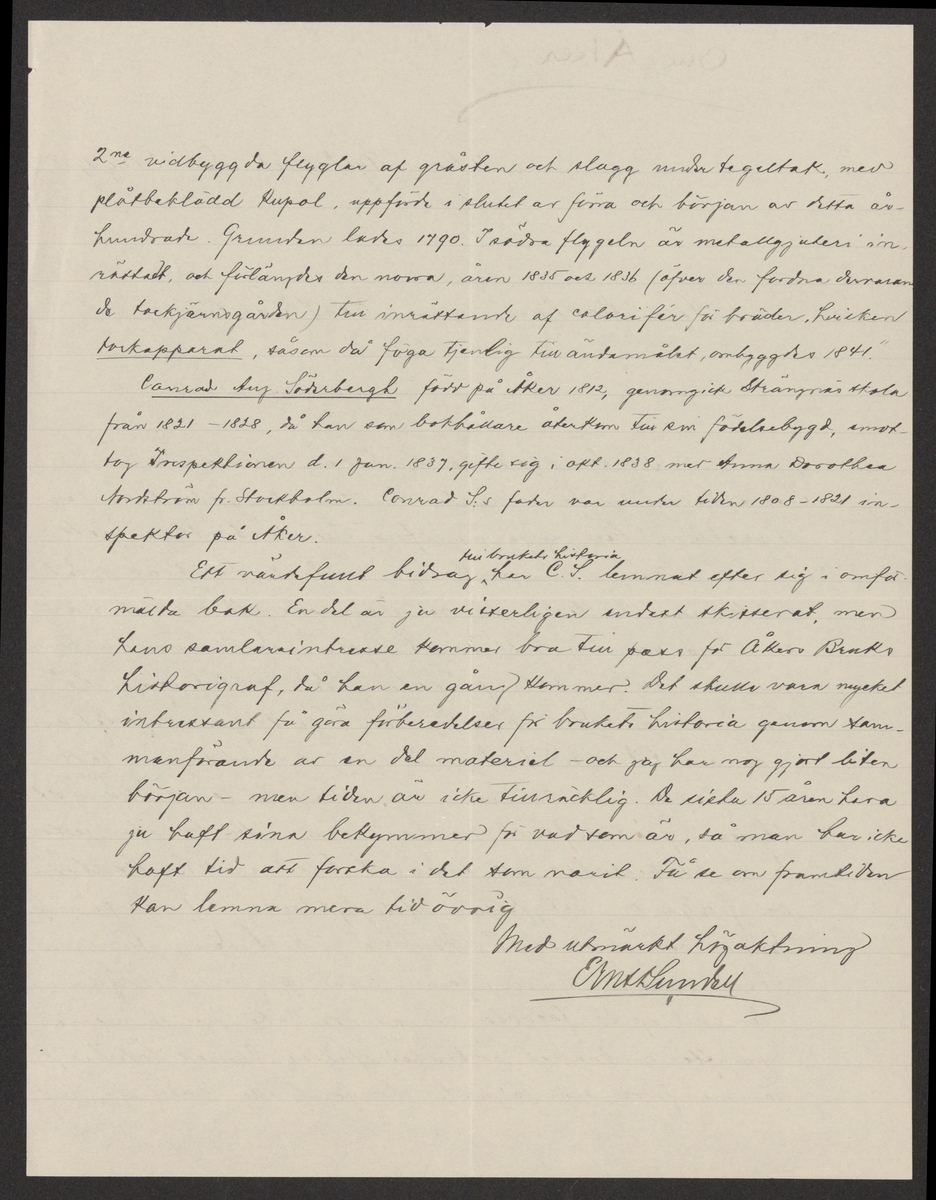 2ne vidbyggda flyglar af gråsten och slagg under tegeltak, med
plåtbeklädd kupol, uppförde i slutet av förra och början av detta år-
hundrade. Grunden lades 1790. I södra flygeln är metallgjuteri in-
rättadt, och förlängdes den norra, åren 1835 och 1836 (öfver den fordna dervaran
de tackjärnsgården) till inrättande af calorifér för bräder, hvilken
torkapparat, såsom då föga tjenlig till ändamålet, ombyggdes 1841."
Conrad Aug. Söderbergh född på Åker 1812, genomgick Strängnäs skola
från 1821 - 1828, då han som bokhållare återkom till sin födelsebygd, emot-
tog Inspektionen d. 1 Jan. 1837, gifte sig i okt. 1838 med Anna Dorothea
Nordström fr. Stockholm. Conrad S:s fader var under tiden 1808 - 1821 in-
spektor på Åker.
till brukets historia
Ett värdefullt bidrag har C. S. lemnat efter sig i omför-
mälda bok. En del är ju visserligen endast skisserat, men
hans samlareintresse kommer bra till pass för Åkers Bruks
historigraf, då han en gång kommer. Det skulle vara mycket
intressant få göra förberedelser för brukets historia genom sam-
manförande av en del materiel - och jag har nog gjort liten
början - men tiden är icke tillräcklig. De sista 15 åren hava
ju haft sina bekymmer för vad som är, så man har icke
haft tid att forska i det som varit. Få se om framtiden
kan lemna mera tid övrig
Med utmärkt högaktning